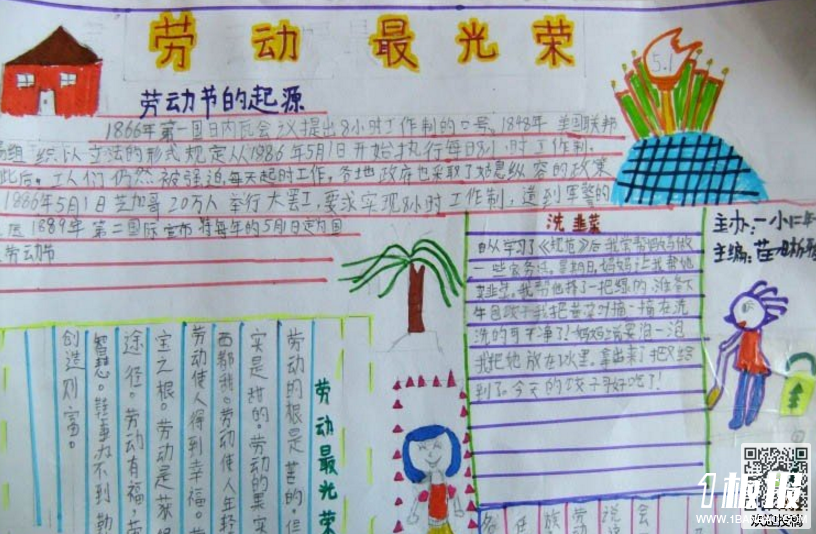 劳动最光荣
5.1
劳动节的起源
1866年第一国日内瓦会议提出8小时工作制的口号。1848年 美国联邦
组织以立法的形式规定从1986年5月1日开始执行每日8小时工作制。
此后。工人们仍然被强迫每天起时工作。各地政府也采取了姑息纵容的政策
1886年5月1日芝加哥20万人举行大罢工,要求实现8小时工作制,遭到军警的
1889年第二国际宣布将每年的5月1日定为国
劳动节
洗韭菜
自从学习了《规范》后我常帮妈妈做
一些家务活。星期日,妈妈让我帮她
韭菜。我帮他择了一把绿的准备下
午包饺子我把韭菜对摘一摘在洗
洗的可干净了!妈妈说要泡一泡
我把他放在水里。拿出来了把
到了。今天的饺子可好吃了!
主办:一小二年
主编:
劳动最光荣
劳动的根是苦的。但
实是甜的。劳动的果实
西都我。劳动使人年轻
劳动使人得到幸福。劳
宝之根。劳动是获得
途径。劳动有福,劳
智慧。鞋事办不到勤
创造财富。
任
族
劳动
说
会
1板报
WWW.1BANBAO.COM
欢迎投稿